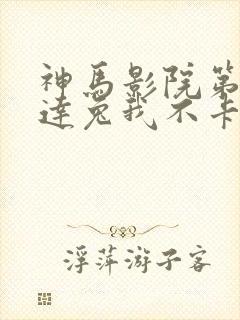 神馬影院第
達兔我不卡
浮萍游子客